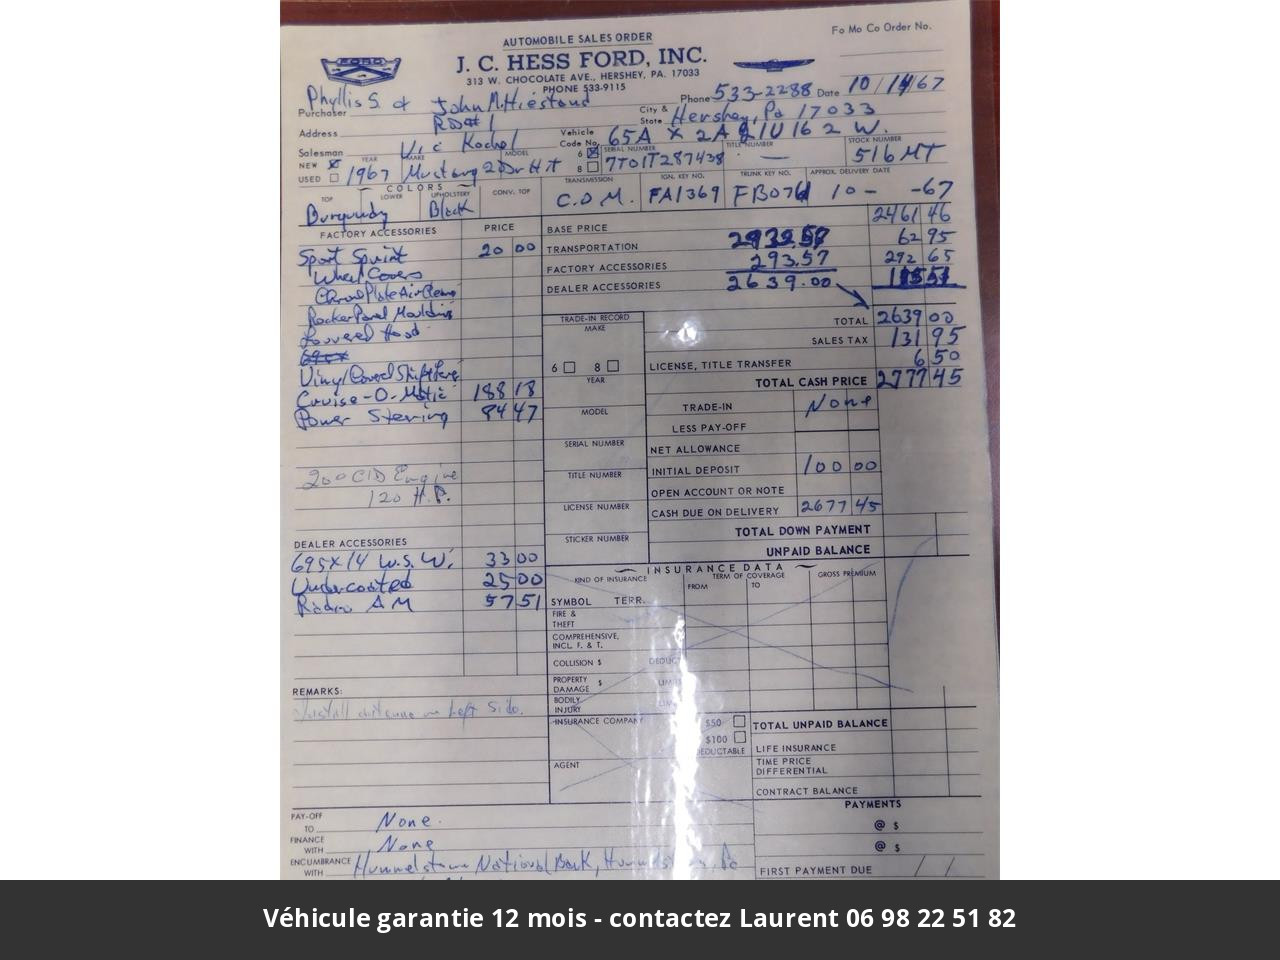 AUTOMOBILE SALES ORDER
Fo Mo Co Order No.
FORD
J. C. HESS FORD, INC.
313 W. CHOCOLATE AVE., HERSHEY, PA. 17033
PHONE 533-9115
Purchaser Phyllis S. & John M. Hiestand Phone 533-2288 Date 10/14/67
Address RD#1 City & State Hershey, Pa 17033
Salesman Vic Kochel Vehicle Code No. 65A X 2A
NEW USED YEAR MAKE MODEL 6 8 SERIAL NUMBER TITLE NUMBER STOCK NUMBER
1967 Mustang 2Dr H.T 7T01T287438 — 516 MT
COLORS
TOP LOWER UPHOLSTERY CONV. TOP TRANSMISSION IGN. KEY NO. TRUNK KEY NO. APPROX. DELIVERY DATE
Burgundy Black C.O.M. FA1369 FB076 10 - -67
FACTORY ACCESSORIES PRICE BASE PRICE 2461 46
Sport Sprint 20 00 TRANSPORTATION 62 95
Wheel Covers FACTORY ACCESSORIES 293.57 272 65
Chrome Plate Air Cleaner DEALER ACCESSORIES 2639.00
Rocker Panel Moulding TRADE-IN RECORD TOTAL 2639 00
Louvered Hood MAKE SALES TAX 131 95
6 8 LICENSE, TITLE TRANSFER 6 50
Vinyl Covered Shift Lever YEAR TOTAL CASH PRICE 2777 45
Cruise-O-Matic 188 18 TRADE-IN None
Power Steering 84 47 MODEL LESS PAY-OFF
SERIAL NUMBER NET ALLOWANCE
200 CID Engine TITLE NUMBER INITIAL DEPOSIT 100 00
120 H.P. OPEN ACCOUNT OR NOTE
LICENSE NUMBER CASH DUE ON DELIVERY 2677 45
STICKER NUMBER TOTAL DOWN PAYMENT
DEALER ACCESSORIES UNPAID BALANCE
695x14 W.S.W. 33 00 INSURANCE DATA
Undercoated 25 00 KIND OF INSURANCE TERM OF COVERAGE GROSS PREMIUM
FROM TO
Radio AM 57 51 SYMBOL TERR.
FIRE & THEFT
COMPREHENSIVE, INCL. F. & T.
COLLISION $ DEDUCT
PROPERTY DAMAGE $ LIMIT
BODILY INJURY
REMARKS:
Install antenna on Left Side.
INSURANCE COMPANY $50 TOTAL UNPAID BALANCE
$100 DEDUCTABLE LIFE INSURANCE
AGENT TIME PRICE DIFFERENTIAL
CONTRACT BALANCE
PAYMENTS
PAY-OFF TO None. @ $
FINANCE WITH None @ $
ENCUMBRANCE WITH Hummelstown National Bank, Pa FIRST PAYMENT DUE / /
Véhicule garantie 12 mois - contactez Laurent 06 98 22 51 82